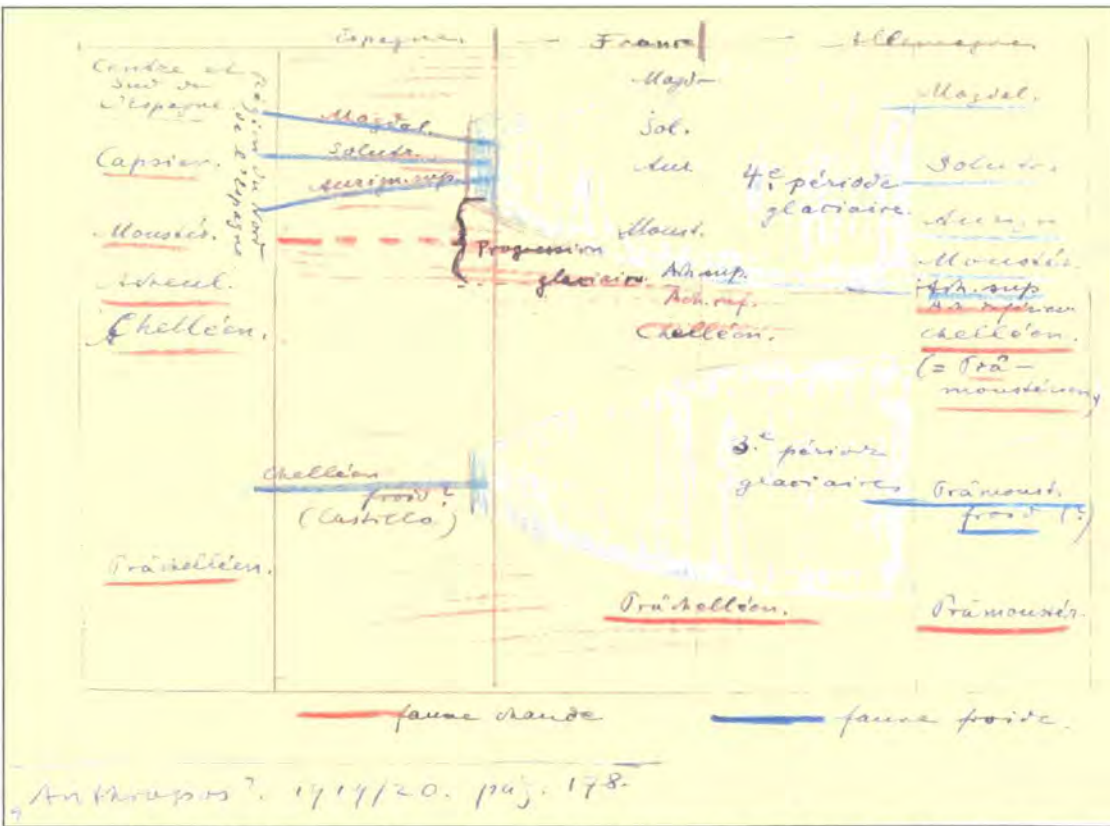 Espagne.
France
Allemagne.
Centre et
Sud de
l'Espagne.
Région du Nord
de l'Espagne
Capsien.
Moustér.
Acheul.
Chelléen.
Práchelléen.
Magdal.
Solutr.
Aurign. sup.
Progression
glaciaire.
Chelléen
froid?
(Castillo)
Magd.
Sol.
Aur.
Moust.
Ach. sup.
Ach. inf.
Chelléen.
4.e période
glaciaire.
3.e période
glaciaires
Práchelléen.
Magdal.
Solutr.
Aurign
Moustér.
Ach. sup
Ach. inférieur
Chelléen.
(= Prä-
moustérien)
Prämoust.
froid (?)
Prämoustér.
faune chaude
faune froide.
Anthropos?. 1919/20. pág. 178.